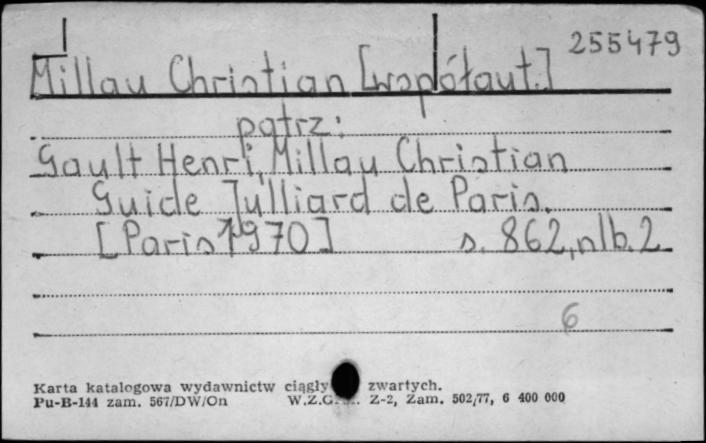 255479
Millau Christian [współaut.]
patrz:
Gault Henri, Millau Christian
Guide Julliard de Paris.
[Paris 1970] s. 862, nlb. 2
6
Karta katalogowa wydawnictw ciągły zwartych.
Pu-B-144 zam. 567/DW/On W.Z.G. Z-2, Zam. 502/77, 6 400 000